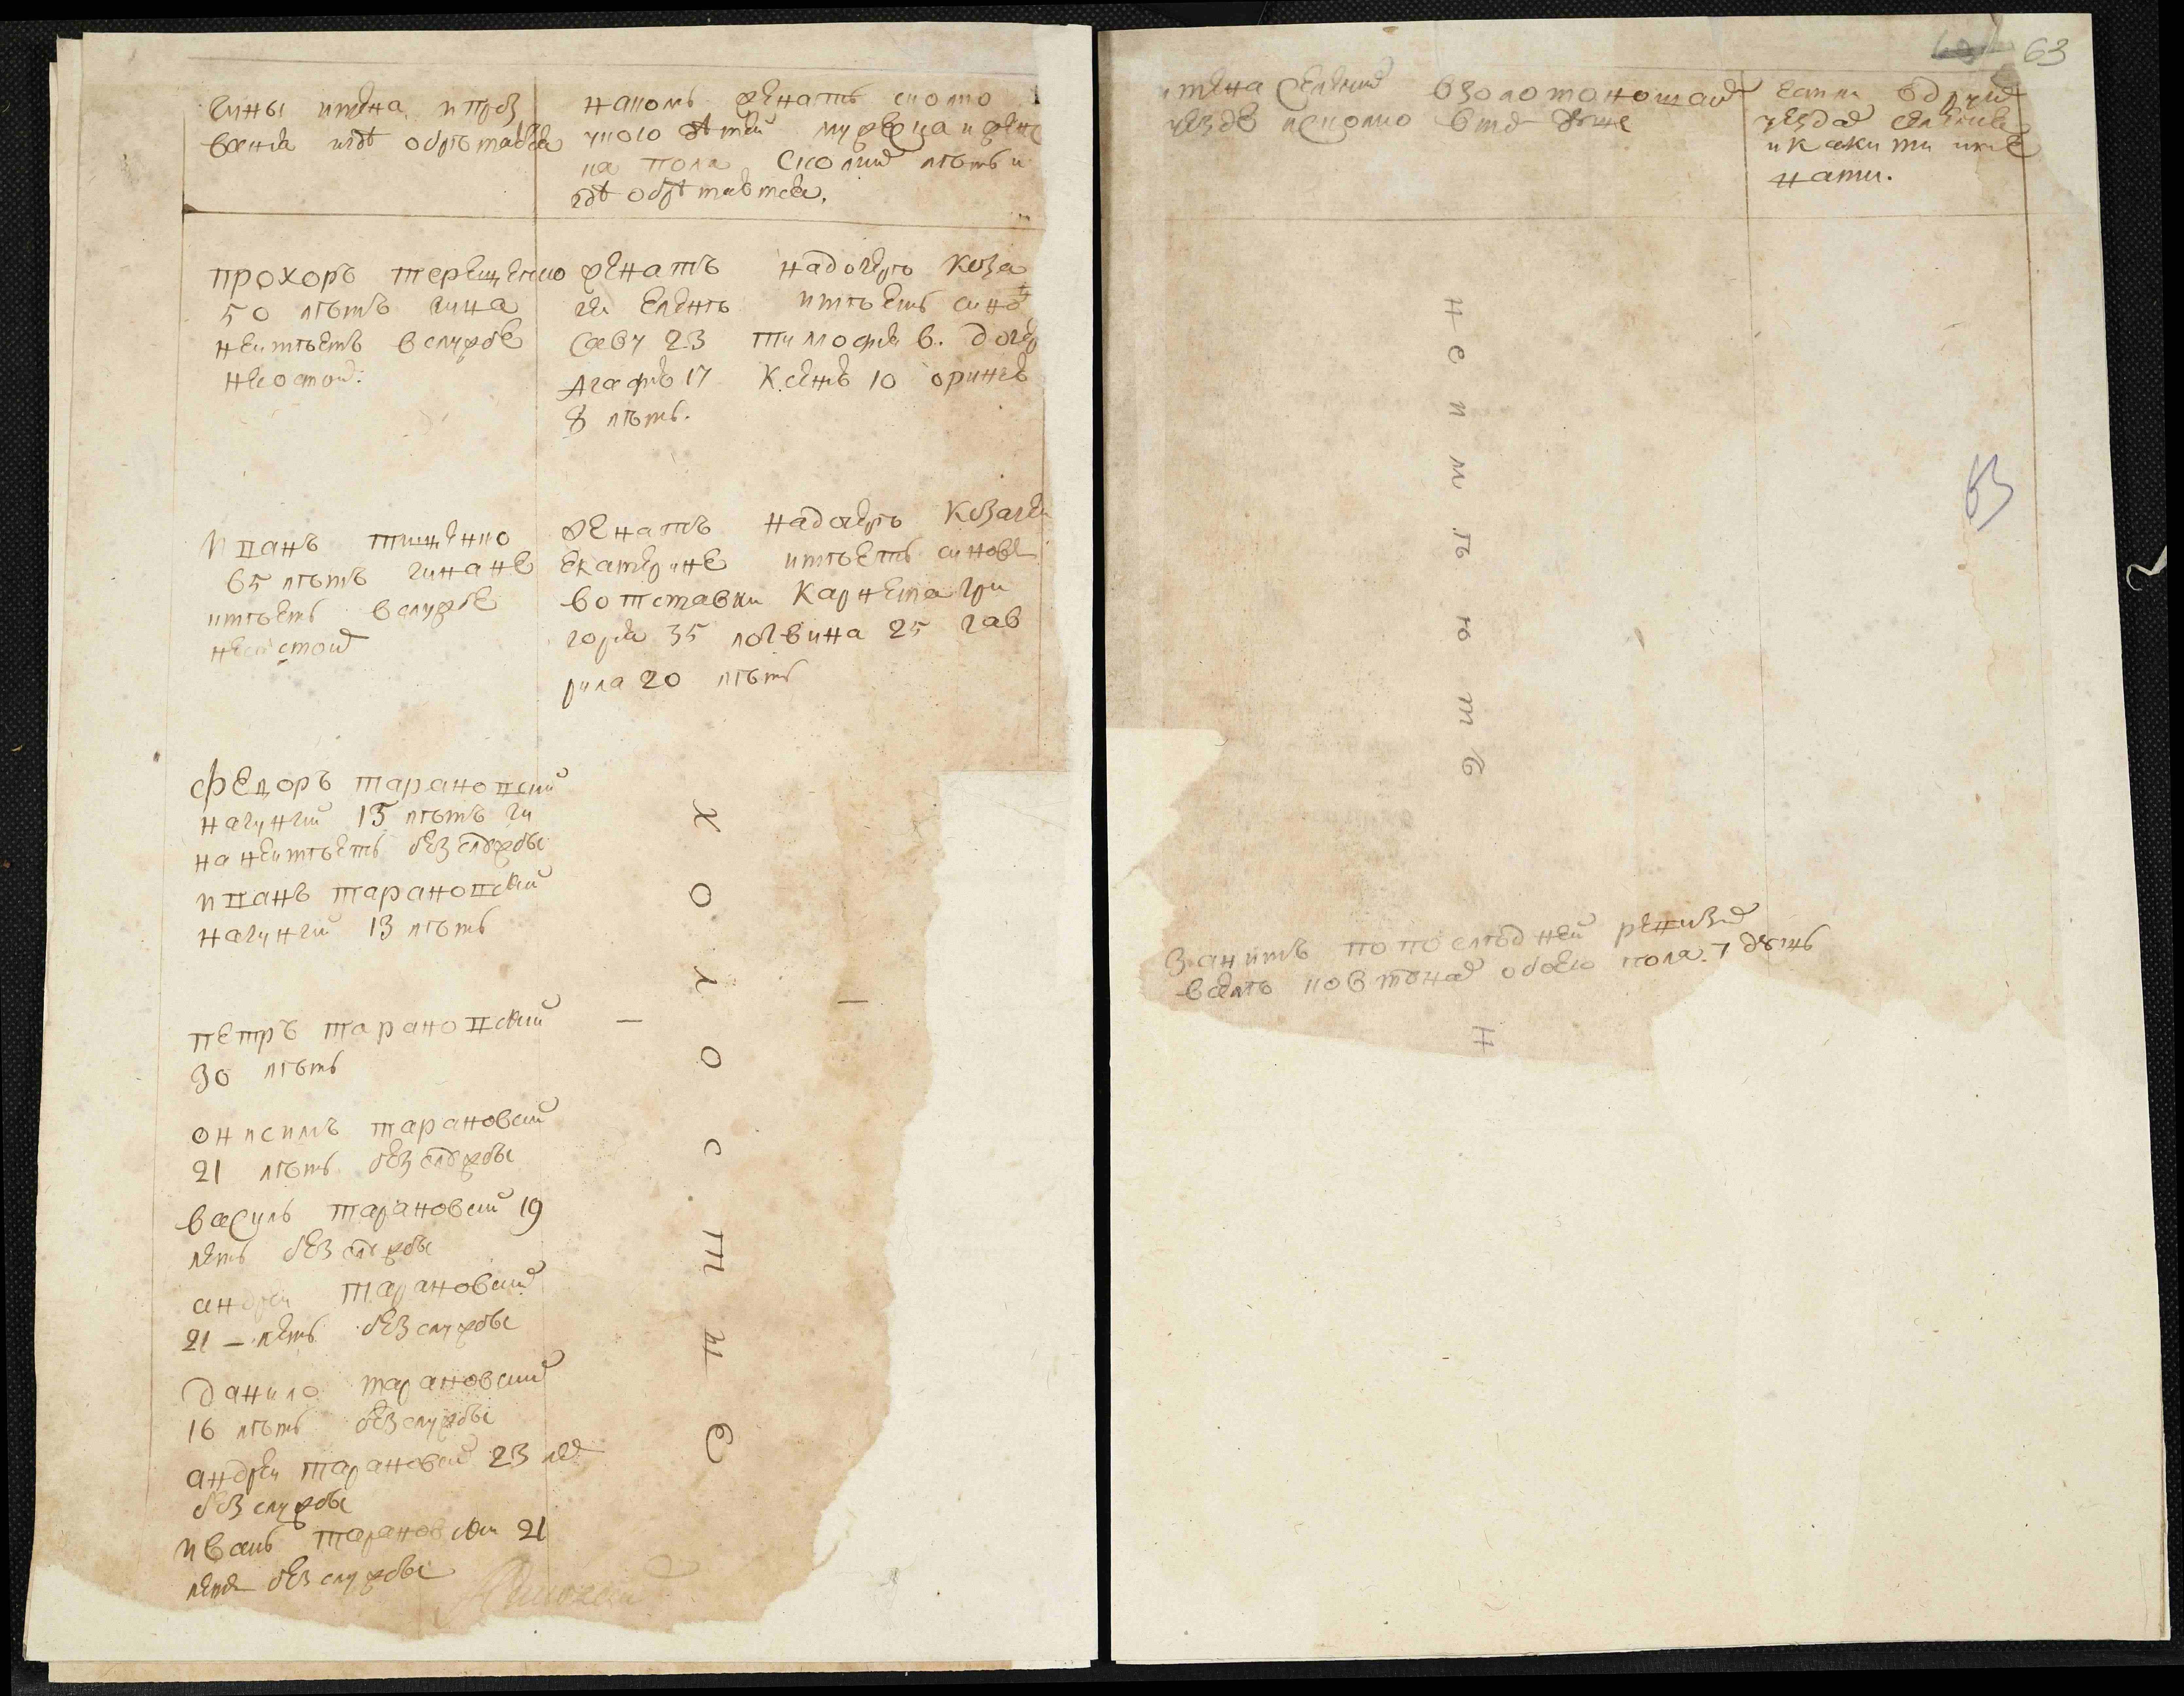 чины имена и проз
вания и где обретаются
на комъ женатъ сколко
у кого детей мужеска и женс
ка пола сколких летъ и
где обретаются.
прохоръ терещенко
50 летъ чина
не имеетъ в службе
не состоит.
женатъ на дочере коза
чей елене имеетъ синов
саву 23 тимофея 6. дочер
Агафю 17 Ксеню 10 оришку
8 летъ.
иванъ тищенко
65 летъ чина не
имеетъ в службе
не состоит
женатъ на дочере козачей
екатерине имеетъ синовей
в отставки карнета гри
горея 35 логвина 25 гав
рила 20 летъ
федоръ тарановский
начнгий 15 летъ чи
на не имеетъ без службы
иванъ тарановский
начнгий 13 летъ
петръ тарановский
30 летъ
онисимъ тарановский
21 летъ без службы
василь тарановский 19
летъ без службы
андрей тарановский
21 – летъ без службы
данило тарановский
16 летъ без службы
андрей тарановский 23 лет
без службы
иванъ тарановски 21
летъ без службы
холостие
63
имена селений в золотоношском
уезде и сколко в тех душъ
если в других
уездах селение
и каки ти име
нами.
не имѣютъ
63
за нимъ по последней ревизии
обоего пола 7 душъ
н